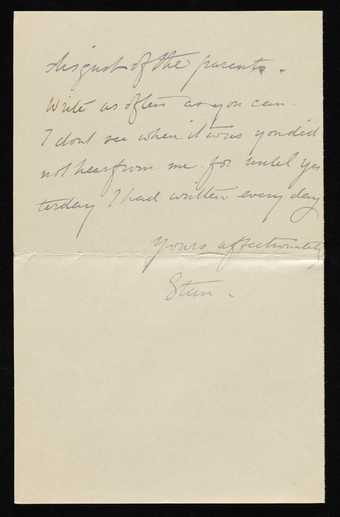 disgust of the parents.
Write as often as you can.
I dont see when it was you did
not hear from me for until yes
terday I had written every day
Yours affectionately